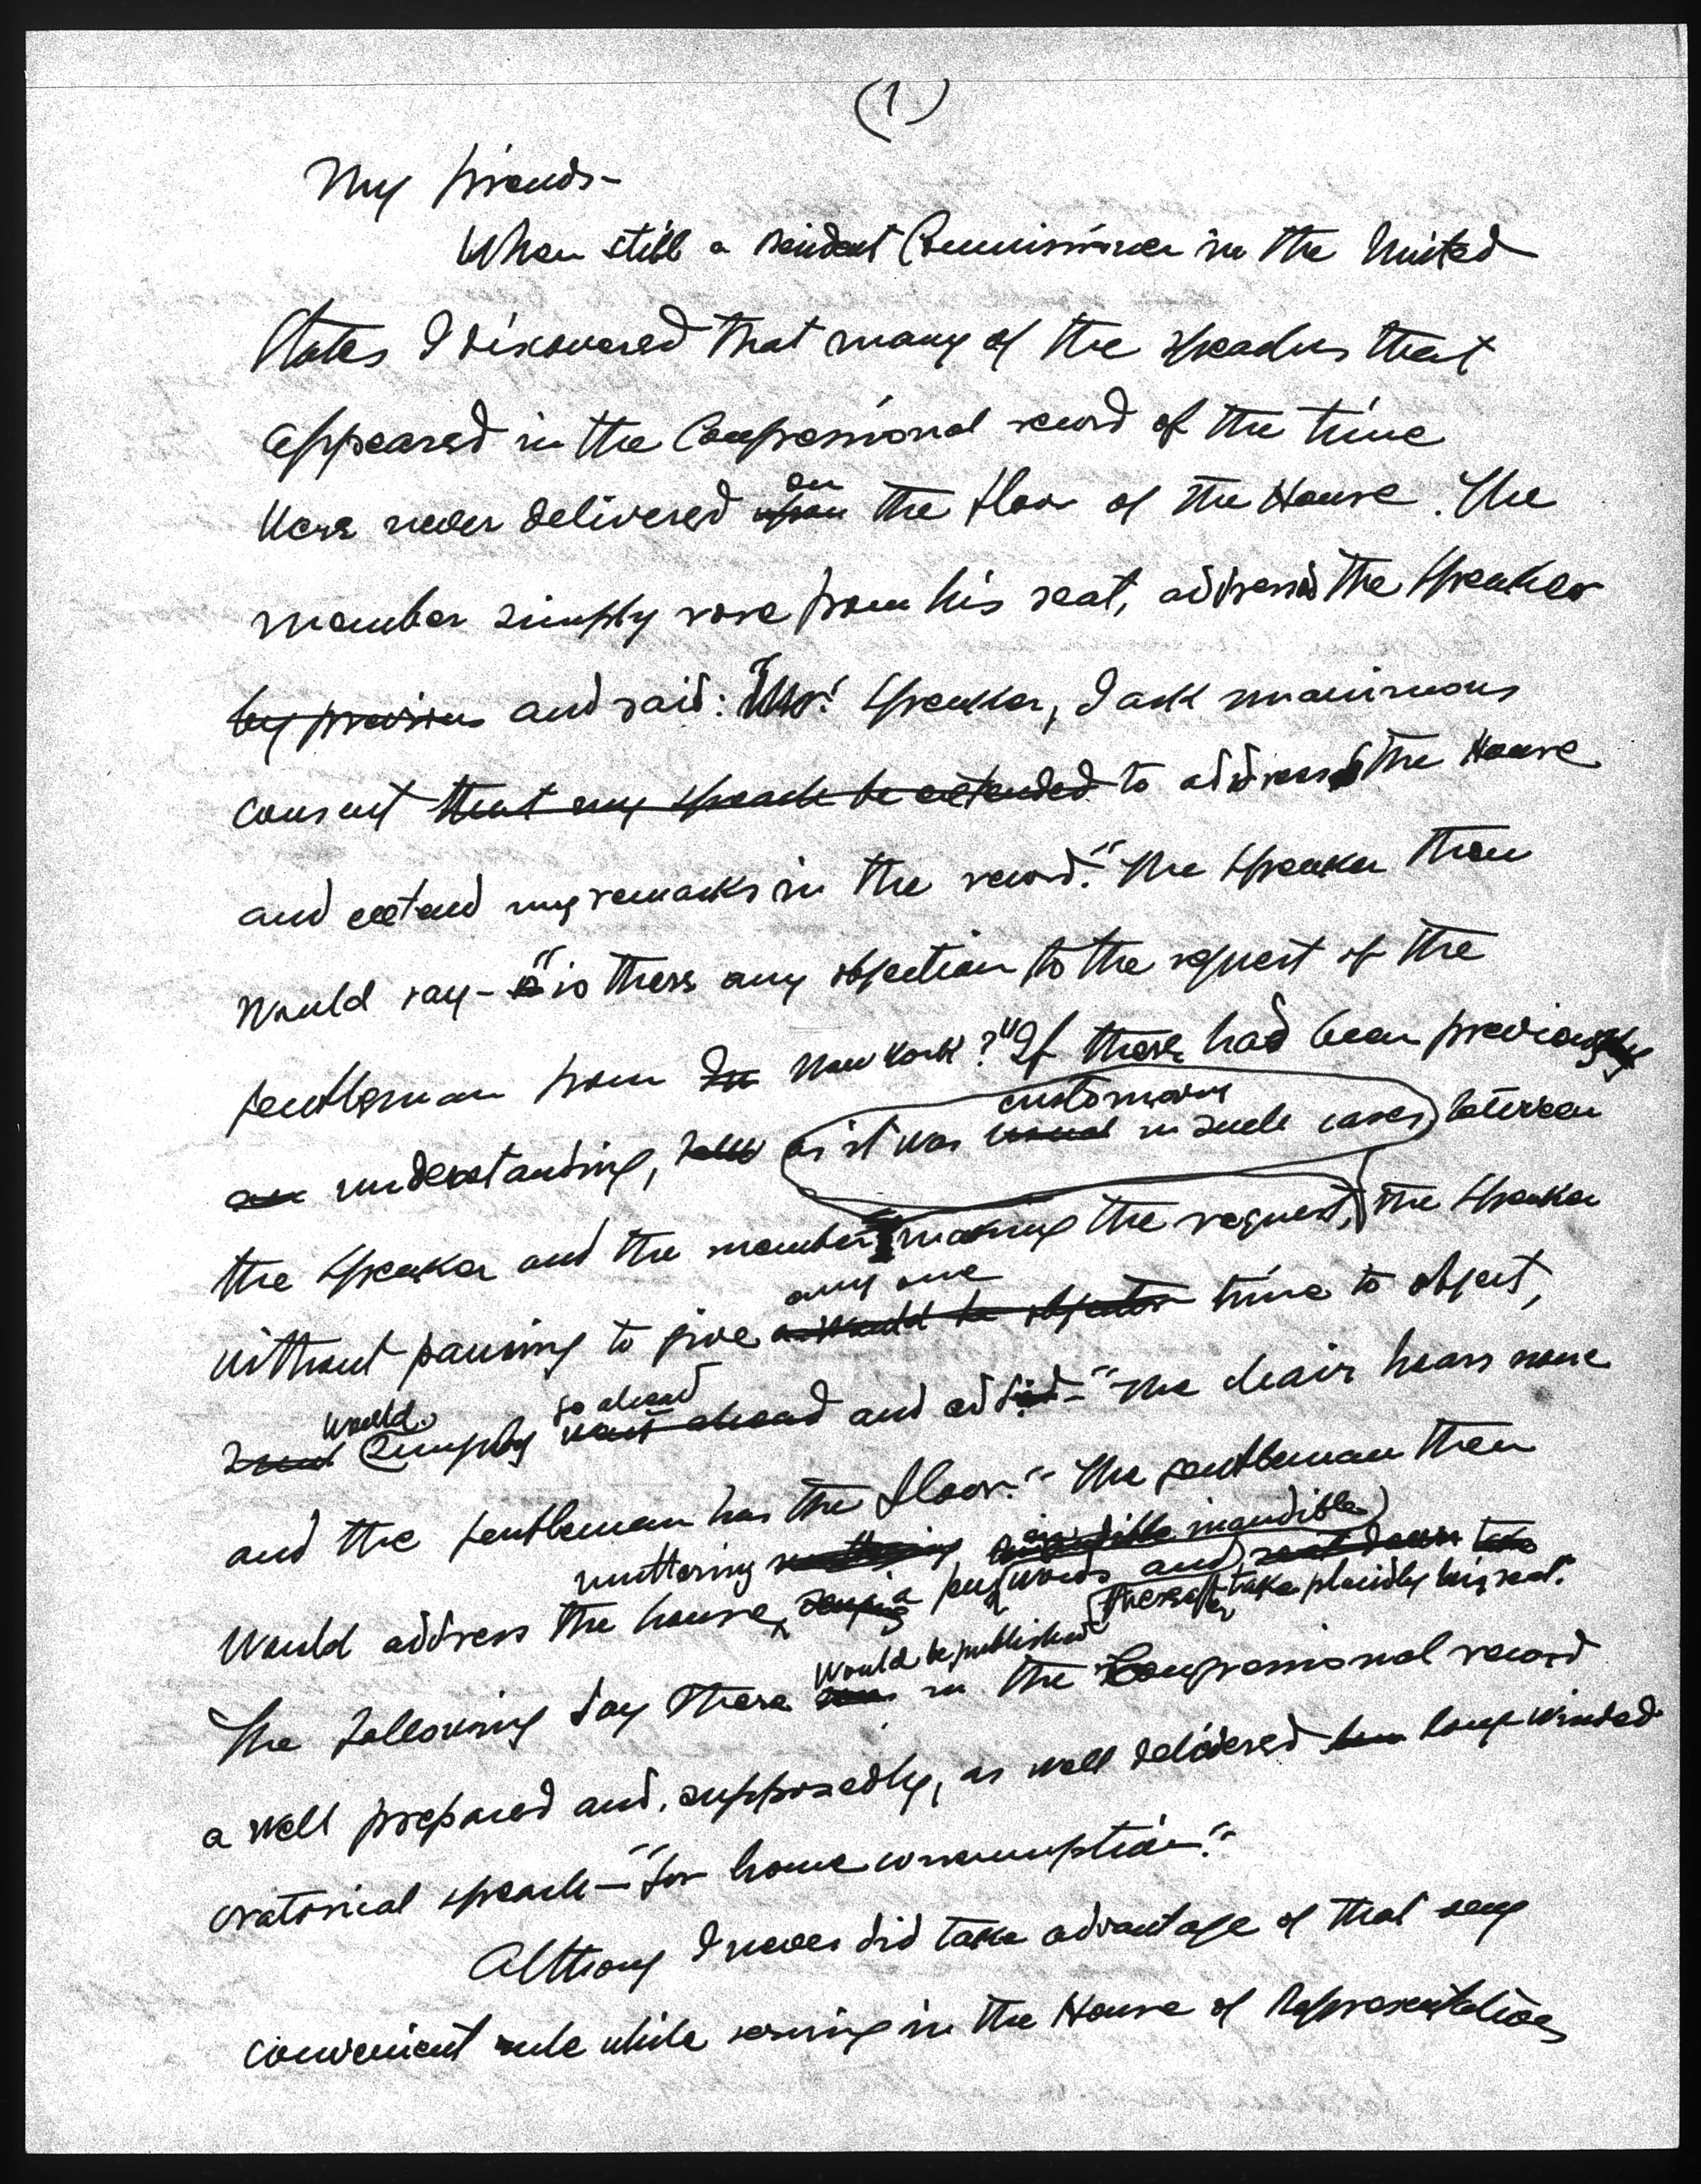 (1)
My friends-
When still a resident Commissioner in the United
States I discovered that many of the speeches that
appeared in the Congressional record of the time
were never delivered upon on the floor of the House. The
member simply rose from his seat, addressed the Speaker
by previous and said: "Mr. Speaker, I ask unanimous
consent that my speech be extended to address the House
and extend my remarks in the record." The Speaker then
would say- "is there any objection to the request of the
gentleman from New York?" If there had been previous
an understanding, as it was usual customary in such cases, between
the Speaker and the member making the request, the Speaker
without pausing to give a would be objector any one time to object,
would simply went ahead go ahead and add - "The chair hears none
and the gentleman has the floor." The gentleman then
would address the house, muttering a few inaudible words and sat down thereafter take placidly his seat.
The following day there would be published in the Congressional record
a well prepared and, supposedly, as well delivered long winded
oratorical speech - "for home consumption."
Althoug I never did take advantage of that very
convenient rule while serving in the House of Representatives